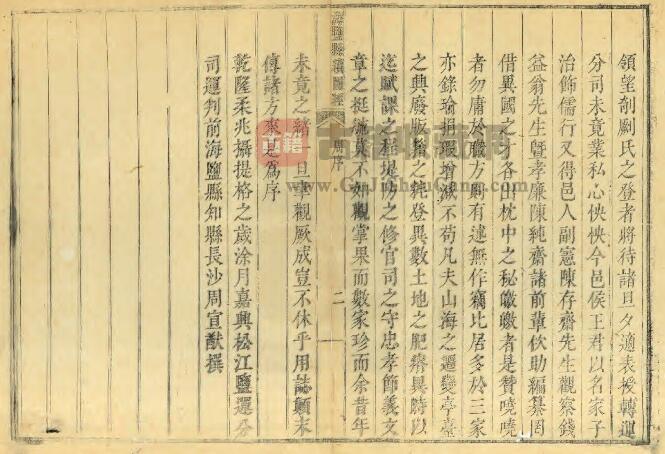 領望剞劂氏之登者將待諸旦夕適表授轉運
分司未竟業私心怏怏今邑侯王君以名家子
治飾儒行又得邑人副憲陳存齋先生觀察錢
益翁先生曁孝廉陳純齋諸前輩佽助編纂罔
借異國之才各出枕中之秘皦皦者是贊嘵嘵
者勿庸於職方則有述無作竊比居多於三家
亦錄瑜捐瑕增減不苟凡夫山海之遷變亭臺
之興廢版籍之耗登異數土地之肥瘠異時以
迄賦課之程堤防之修官司之守忠孝節義文
章之挺毓莫不如觀掌果而數家珍而余昔年
海鹽縣續圖經
周序
二
未竟之緒一旦聿觀厥成豈不休乎用誌顛末
傳諸方來是為序
乾隆柔兆攝提格之歲涂月嘉興松江鹽運分
司運判前海鹽縣知縣長沙周宣猷撰
古籍
www.GuJinShuCang.com